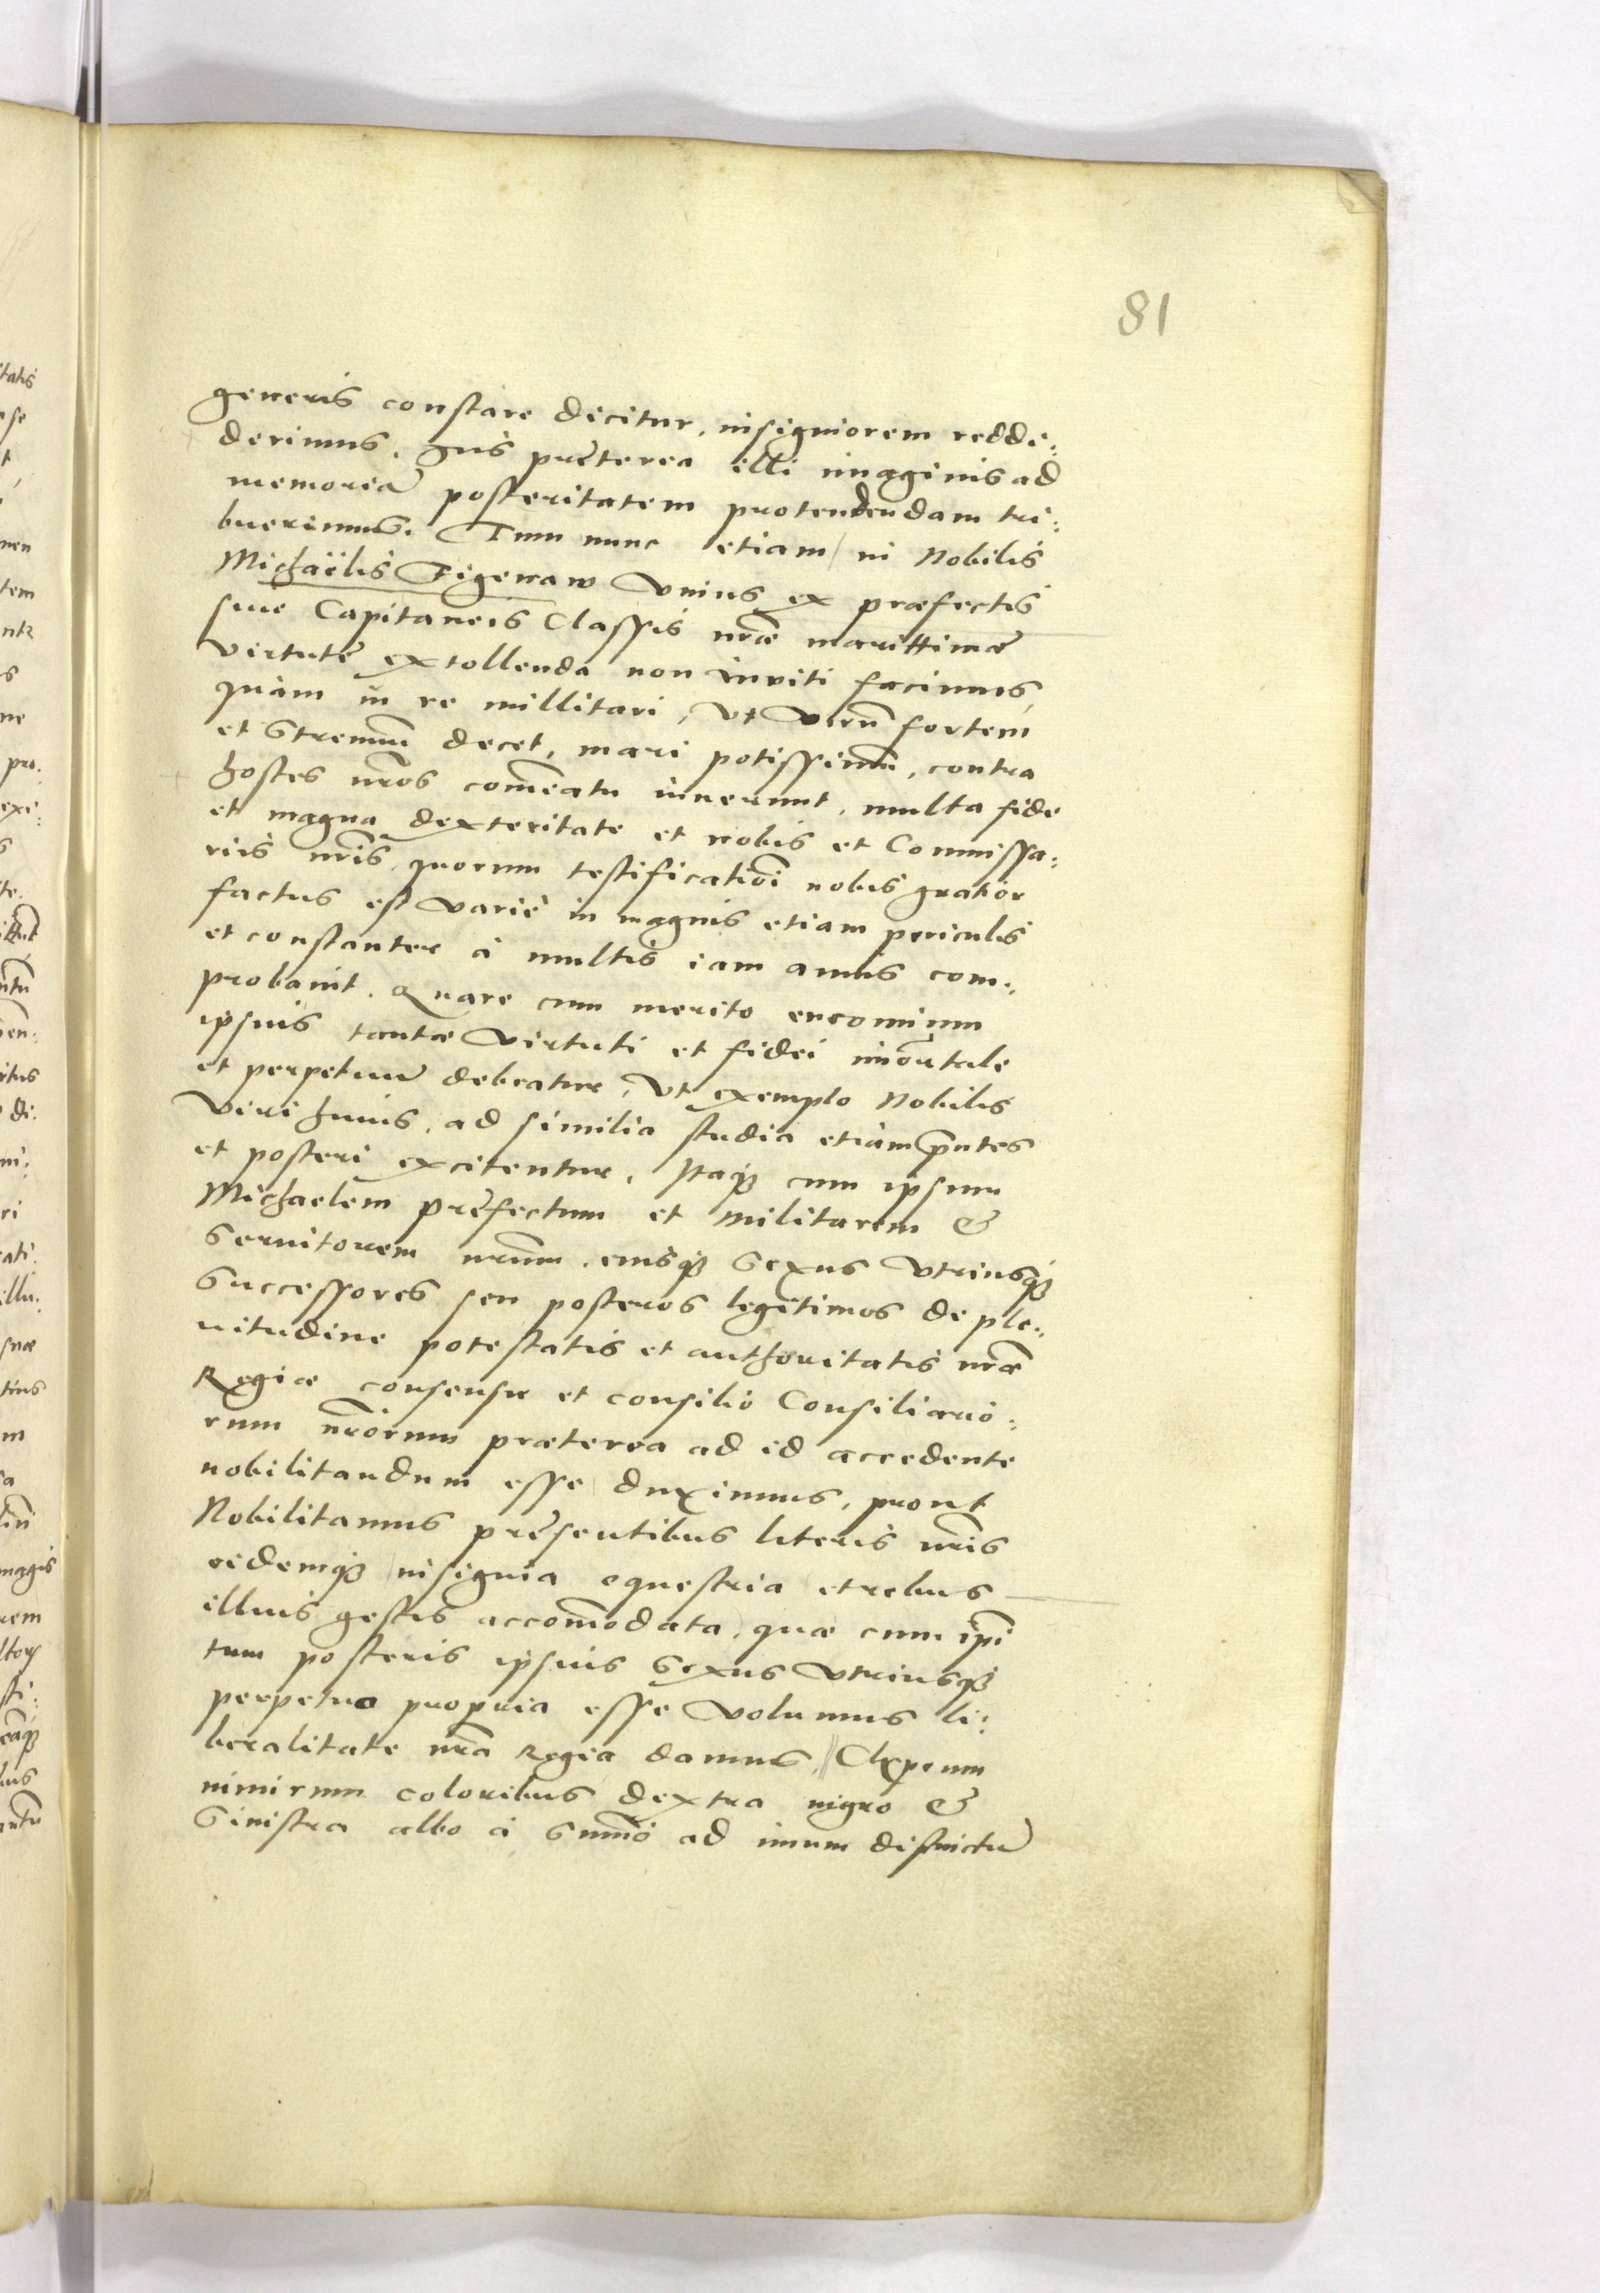 81
generis constare dicitur, insigniorem redde:
derimus, Ius pręterea illi imaginis ad
memoriā posteritatem protendendam tri:
buerimus. Tum nunc etiam in Nobilis
Michaëlis Figenaw Vnius ex præfectis
siue Capitaneis Classis nr̄æ marittimæ
virtutē extollenda non inviti facimus,
quàm in re millitari, Vt Virū fortem
et Strenuū decet, mari potissimū, contra
hostes nr̄os com̄eatu iuuerunt, multa fide
et magna dexteritate et nobis et Commissa:
riis nr̄is, quorum testificatiōi nobis gratior
factus est Variè in magnis etiam periculis
et constanter à multis iam annis com:
probauit. Quare cum merito encomium
ipsius tantæ Virtuti et fidei im̄ortale
et perpetuū debeatur, Vt exemplo Nobilis
Viri huius, ad similia studia etiam p̄ntes
et posteri excitentur, Itaq̨ cum ipsum
Michaelem pręfectum et militarem &
Seruitorem nr̄um, eiusq̨ Sexus Vtriusq̨
Successores seu posteros legitimos de ple:
nitudine potestatis et authoritatis nr̄æ
Regiæ consensu et consilio Consiliario:
rum nr̄orum præterea ad id accedente
nobilitandum esse duximus, prout
Nobilitamus pręsentibus literis nr̄is
eidemq̨ insignia equestria et rebus
illius gestis accom̄odata, quæ cum ip̄i
tum posteris ipsius Sexus Vtriusq̨
perpetuo propria esse Volumus li:
beralitate nr̄a Regia damus, Clypeum
nimirum coloribus dextra nigro &
Sinistra albo à Sum̄o ad imum distinctū